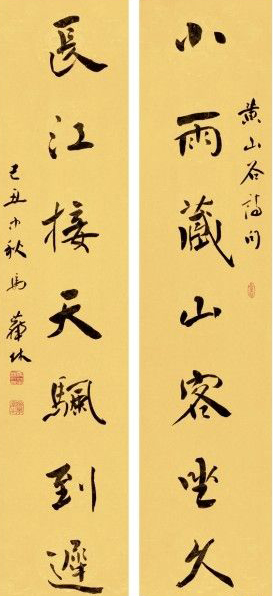 黄山谷詩句
小雨藏山客坐久
長江接天颿到遲
己丑中秋馬